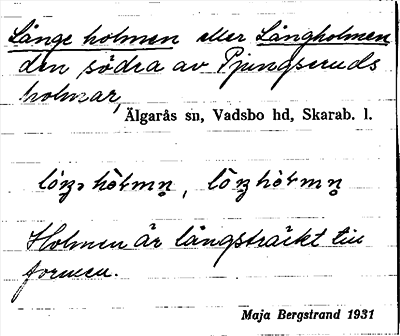 Långe holmen eller Långholmen
den södra av Pjungseruds
holmar,
Älgarås sn, Vadsbo hd, Skarab. l.
Holmen är långsträckt till
formen.
Maja Bergstrand 1931